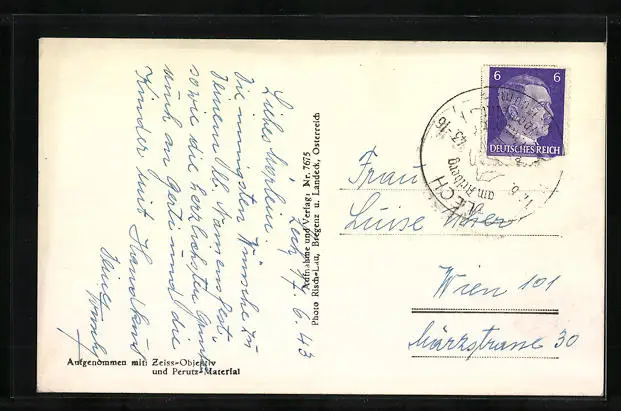 Lech, 17. 6. 43
Liebes
die innigsten Wünsche zu
Deinem lb. Namensfest,
sowie die herzlichsten Grüße
auch an Gerti und die
Kinder mit Handkuss
Aufgenommen mit Zeiss-Objektiv
und Perutz-Material
Aufnahme und Verlag: Nr. 7675
Photo Risch-Lau, Bregenz u. Landeck, Österreich
6 6
DEUTSCHES REICH
LECH
am Arlberg
Frau
Luise
Wien 101
Märzstrasse 30